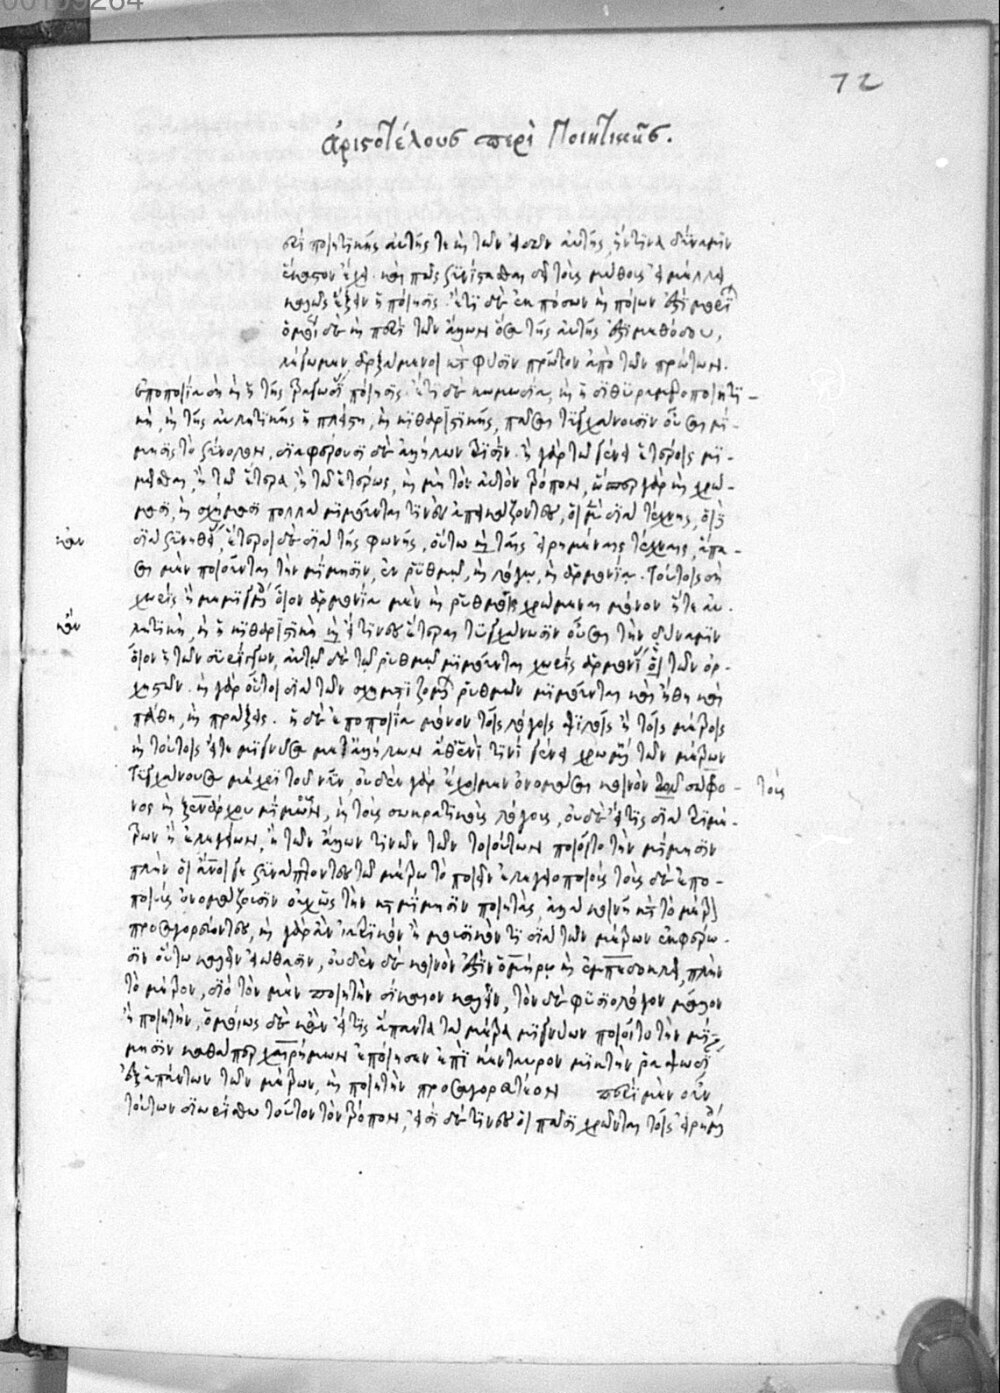 00109264
72
ἀριστοτέλους περὶ Ποιητικῆς.
περὶ ποιητικῆς αὐτῆς τε καὶ τῶν εἰδῶν αὐτῆς, ἥντινα δύναμιν
ἕκαστον ἔχει. καὶ πῶς συνίστασθαι δεῖ τοὺς μύθους εἰ μέλλει
καλῶς ἕξειν ἡ ποίησις. ἔτι δὲ ἐκ πόσων καὶ ποίων ἐστὶ μορίων
ὁμοίως δὲ καὶ περὶ τῶν ἄλλων ὅσα τῆς αὐτῆς ἐστι μεθόδου,
λέγωμεν, ἀρξάμενοι κατὰ φύσιν πρῶτον ἀπὸ τῶν πρώτων.
ἐποποιΐα δὴ καὶ ἡ τῆς τραγωδίας ποίησις ἔτι δὲ κωμωδία, καὶ ἡ διθυραμβοποιητι-
κὴ, καὶ τῆς αὐλητικῆς ἡ πλείστη, καὶ κιθαριστικῆς, πᾶσαι τυγχάνουσιν οὖσαι μι-
μήσεις τὸ σύνολον, διαφέρουσι δὲ ἀλλήλων τρισὶν. ἢ γὰρ τῶ γένει ἑτέροις μι-
μεῖσθαι, ἢ τῶ ἕτερα, ἢ τῶ ἑτέρως, καὶ μὴ τὸν αὐτὸν τρόπον, ὥσπερ γὰρ καὶ χρώ-
μασι, καὶ σχήμασι πολλὰ μιμοῦνταί τινες ἀπεικάζοντες, οἱ μὲν διὰ τέχνης, οἱ δὲ
διὰ συνηθείας, ἕτεροι δὲ διὰ τῆς φωνῆς, οὕτω καὶ ταῖς εἰρημέναις τέχναις, ἅπα-
κἀν
σαι μὲν ποιοῦνται τὴν μίμησιν, ἐν ῥυθμῶ, καὶ λόγω, καὶ ἁρμονία. τούτοις δὴ
χωρὶς ἢ μεμιγμένοις οἷον ἁρμονία μὲν καὶ ῥυθμῶ χρώμεναι μόνον ἥτε αὐ-
λητικὴ, καὶ ἡ κιθαριστικὴ καὶ εἴ τινες ἕτεραι τυγχάνωσιν οὖσαι τὴν δύναμιν
κἂν
οἷον ἡ τῶν συρίγγων, αὐτῶ δὲ τῶ ῥυθμῶ μιμοῦνται χωρὶς ἁρμονίας οἱ τῶν ὀρ-
χηστῶν. καὶ γὰρ οὗτοι διὰ τῶν σχηματιζομένων ῥυθμῶν μιμοῦνται καὶ ἤθη καὶ
πάθη, καὶ πράξεις. ἡ δὲ ἐποποιΐα μόνον τοῖς λόγοις ψιλοῖς ἢ τοῖς μέτροις
καὶ τούτοις εἴτε μιγνῦσα μετ' ἀλλήλων εἴθ' ἑνί τινι γένει χρωμένη τῶν μέτρων
τυγχάνουσα μέχρι τοῦ νῦν, οὐδὲν γὰρ ἔχοιμεν ὀνομάσαι κοινὸν τοὺ σώφρο-
τοὺς
νος καὶ ξενάρχου μίμους, καὶ τοὺς σωκρατικοὺς λόγους, οὐδὲ εἴ τις διὰ τριμέ-
τρων ἢ ἐλεγείων, ἢ τῶν ἄλλων τινῶν τῶν τοιούτων ποιοῖτο τὴν μίμησιν
πλὴν οἱ ἄνθρωποί γε συνάπτοντες τῶ μέτρω τὸ ποιεῖν ἐλεγειοποιοὺς τοὺς δὲ ἐπο-
ποιοὺς ὀνομάζουσιν οὐχ ὡς τὴν κατὰ μίμησιν ποιητὰς, ἀλλὰ κοινῆ κατὰ τὸ μέτρον
προσαγορεύοντες, καὶ γὰρ ἂν ἰατρικὸν ἢ μουσικόν τι διὰ τῶν μέτρων ἐκφέρω-
σιν οὕτω καλεῖν εἰώθασιν, οὐδὲν δὲ κοινὸν ἐστὶν ὁμήρω καὶ ἐμπεδοκλεῖ, πλὴν
τὸ μέτρον, διὸ τὸν μὲν ποιητὴν δίκαιον καλεῖν, τὸν δὲ φυσιολόγον μᾶλλον
ἢ ποιητὴν, ὁμοίως δὲ κἂν εἴ τις ἅπαντα τὰ μέτρα μιγνύων ποιοῖτο τὴν μί-
μησιν καθάπερ χαιρήμων ἐποίησεν ἱπποκένταυρον μικτὴν ῥαψωδίαν
ἐξ ἁπάντων τῶν μέτρων, καὶ ποιητὴν προσαγορευτέον περὶ μὲν οὖν
τούτων διωρίσθω τοῦτον τὸν τρόπον, εἰσὶ δέ τινες οἳ πᾶσι χρῶνται τοῖς εἰρημένοις